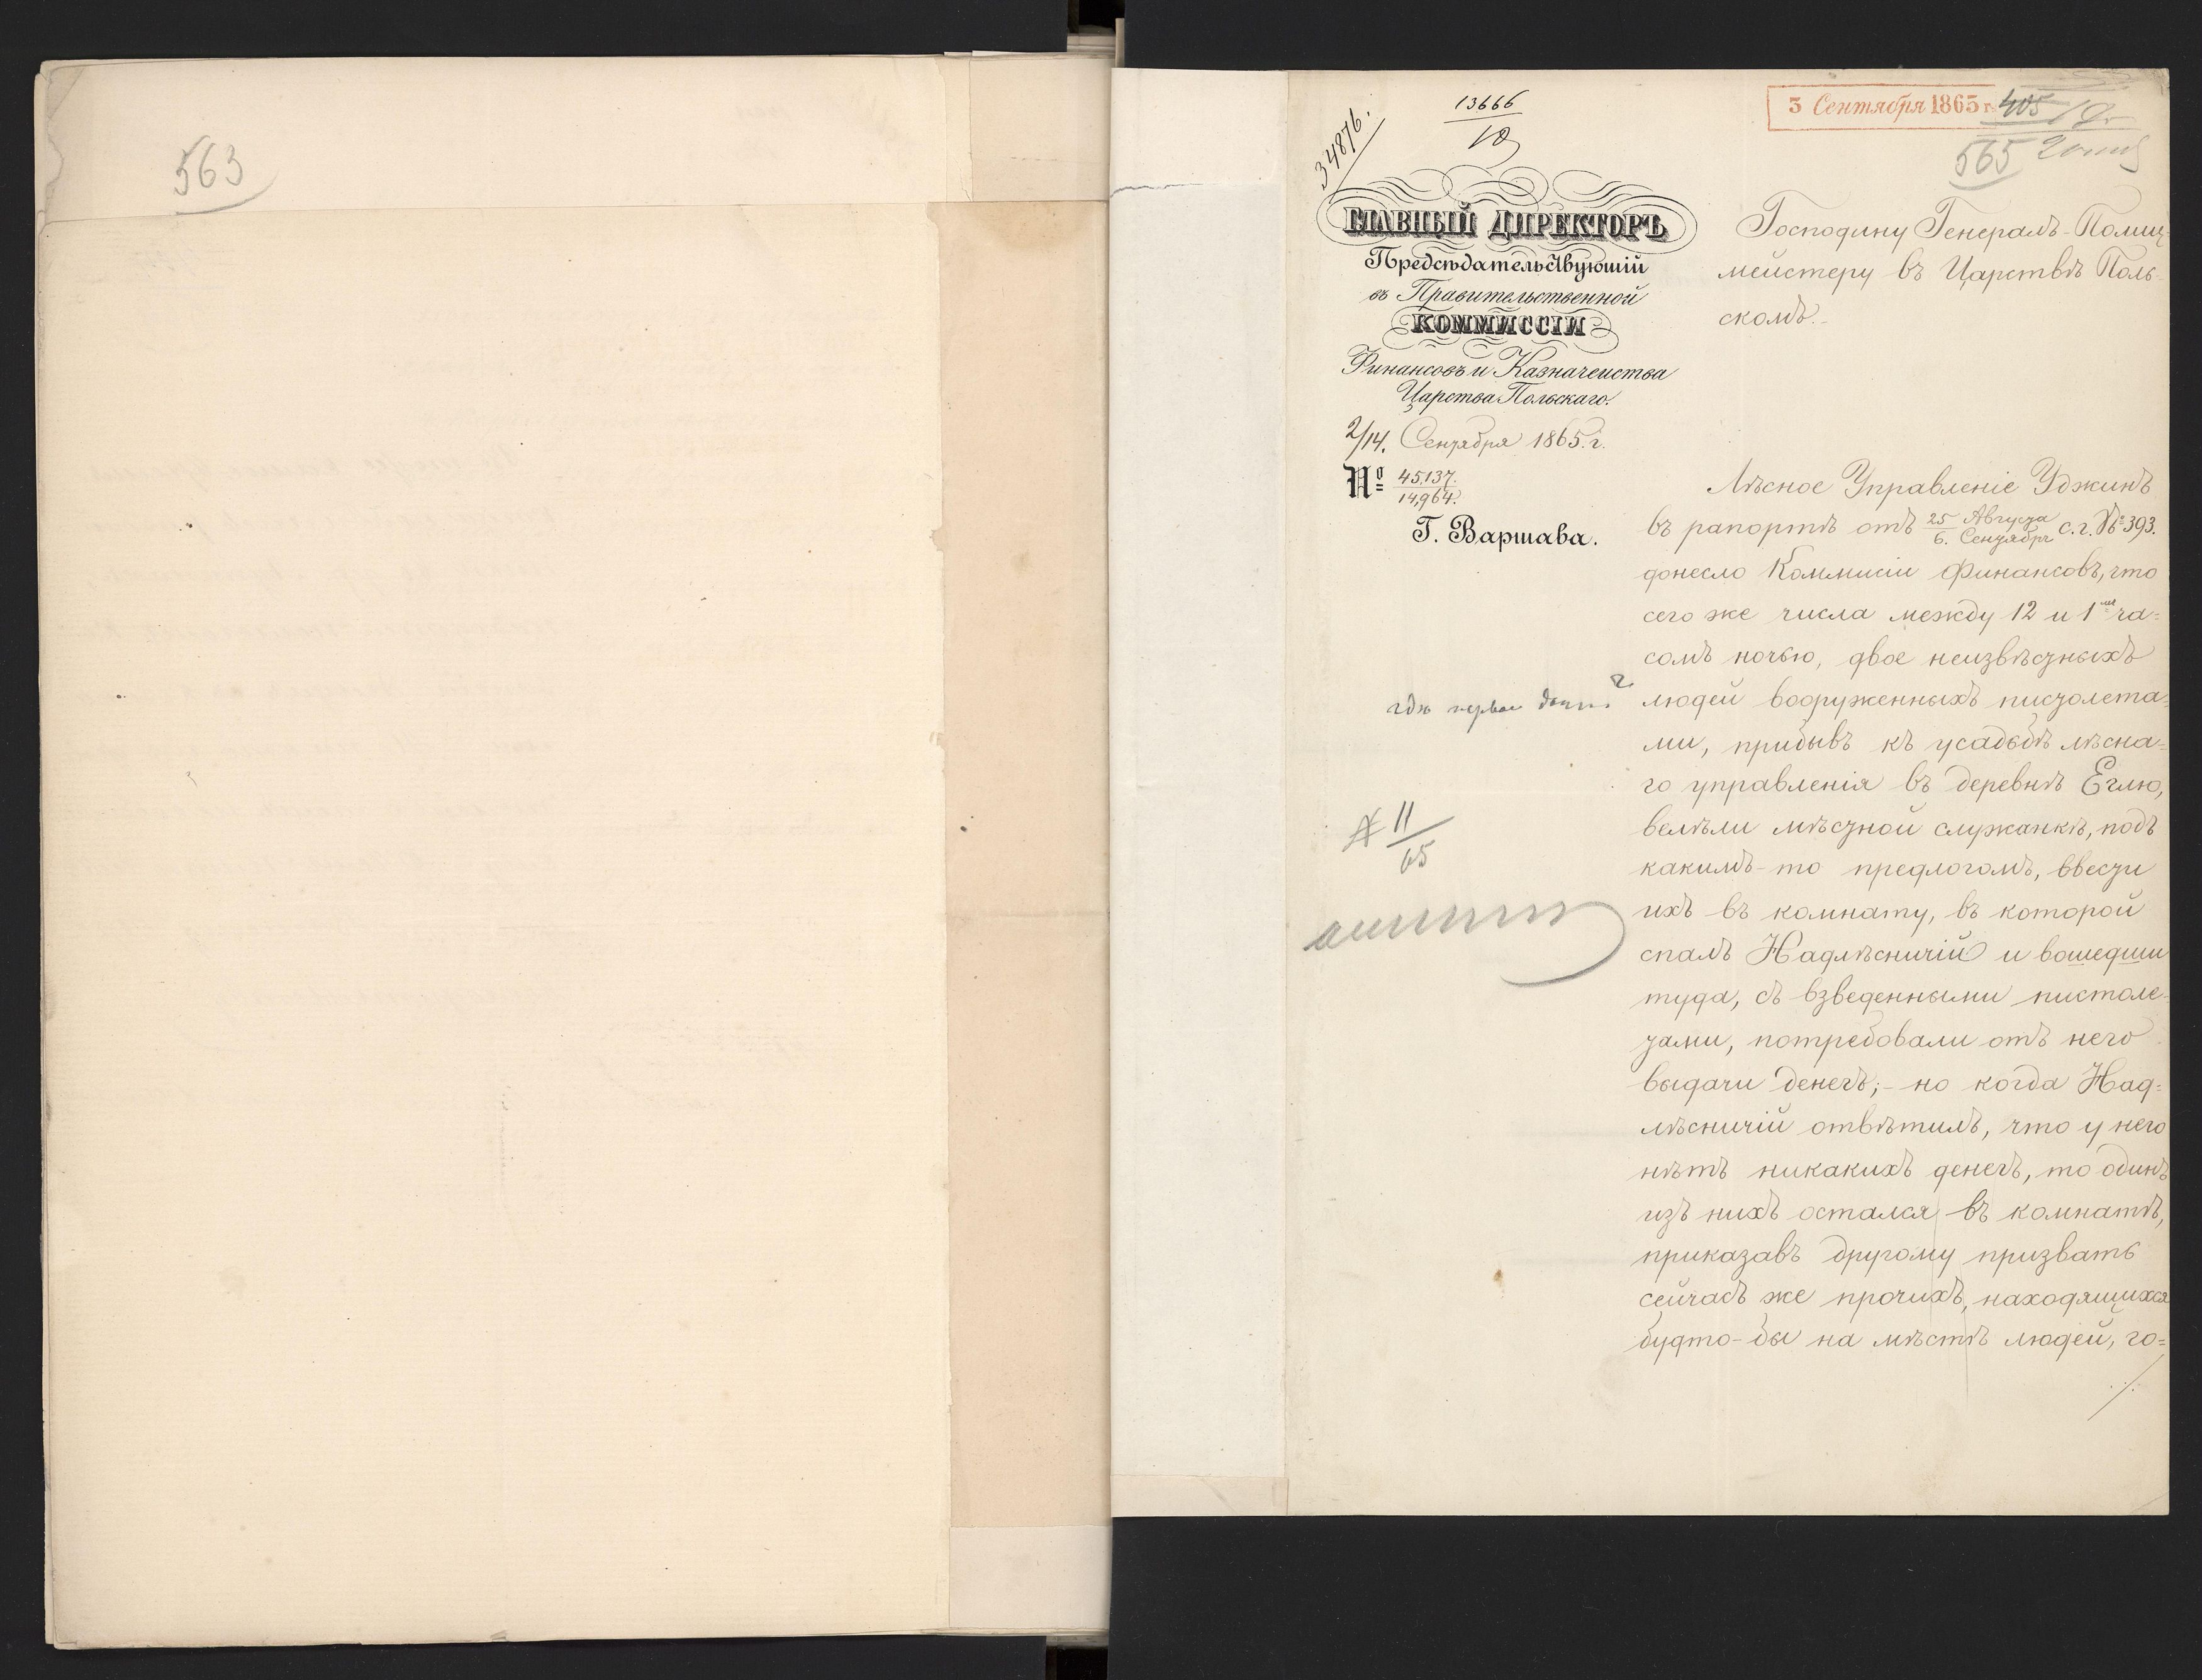 563
34876.
13666
10
3 Сентября 1865 г.
405
565
ГЛАВНЫЙ ДИРЕКТОРЪ
Предсѣдательствующій
въ Правительственной
КОММИССІИ
Финансовъ и Казначейства
Царства Польскаго.
2/14. Сентября 1865. г.
№ 45,137.
14,964.
Г. Варшава.
Господину Генералъ-Полиц-
мейстеру въ Царствѣ Поль-
скомъ.-
Лѣсное Управленіе Уджинъ
въ рапортѣ отъ 25 Августа / 6. Сентября с. г. № 393.
донесло Коммисіи Финансовъ, что
сего же числа между 12 и 1мъ ча=
сомъ ночью, двое неизвѣстныхъ
людей вооруженныхъ пистолета=
ми, прибывъ къ усадьбѣ лѣсна=
го управленія въ деревнѣ Еглю,
велѣли мѣстной служанкѣ, подъ
какимъ-то предлогомъ, ввести
ихъ въ комнату, въ которой
спалъ Надлѣсничій и вошедши
туда, съ взведенными пистоле-
тами, потребовали отъ него
выдачи денегъ;- но когда Над=
лѣсничій отвѣтилъ, что у него
нѣтъ никакихъ денегъ, то одинъ
изъ нихъ остался въ комнатѣ,
приказавъ другому призвать
сейчасъ же прочихъ, находящихся
будто-бы на мѣстѣ людей, го=
гдѣ первое
11
65